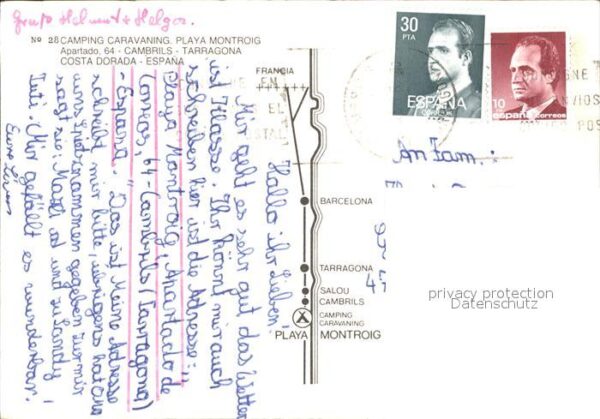 Gruß Helmut + Helga.
No 28 CAMPING CARAVANING. PLAYA MONTROIG
Apartado, 64 - CAMBRILS - TARRAGONA
COSTA DORADA - ESPAÑA
30
PTA
ESPAÑA
10
españa correos
FRANCIA
BARCELONA
TARRAGONA
SALOU
CAMBRILS
CAMPING
CARAVANING
PLAYA MONTROIG
An Fam.:
Hallo ihr Lieben,
Mir geht es sehr gut das Wetter
ist Klasse. Ihr könnt mir auch
schreiben hier ist die Adresse:
"Playa Montroig, Apartado de
Correos, 64-Cambrils (Tarragona)
- España." Das ist meine Adresse
schreibt mir bitte, übrigens hat
uns Spitznammen gegeben zu mir
sagt sie: und zu Sandy
Inti. Mir gefällt es wunderbar.
Eure
privacy protection
Datenschutz